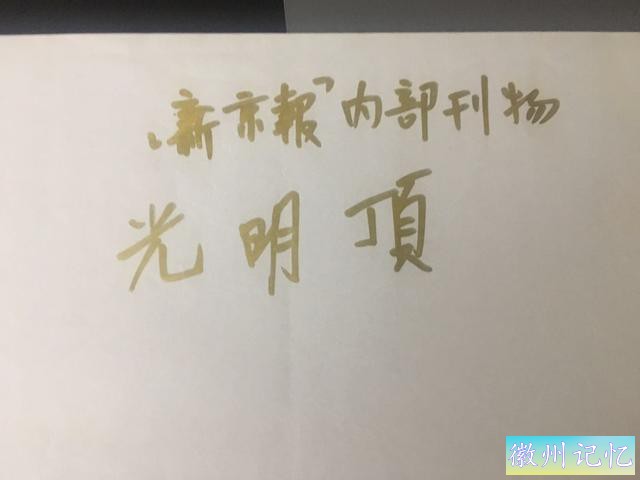 「新京報」内部刊物
光明頂
徽州记忆